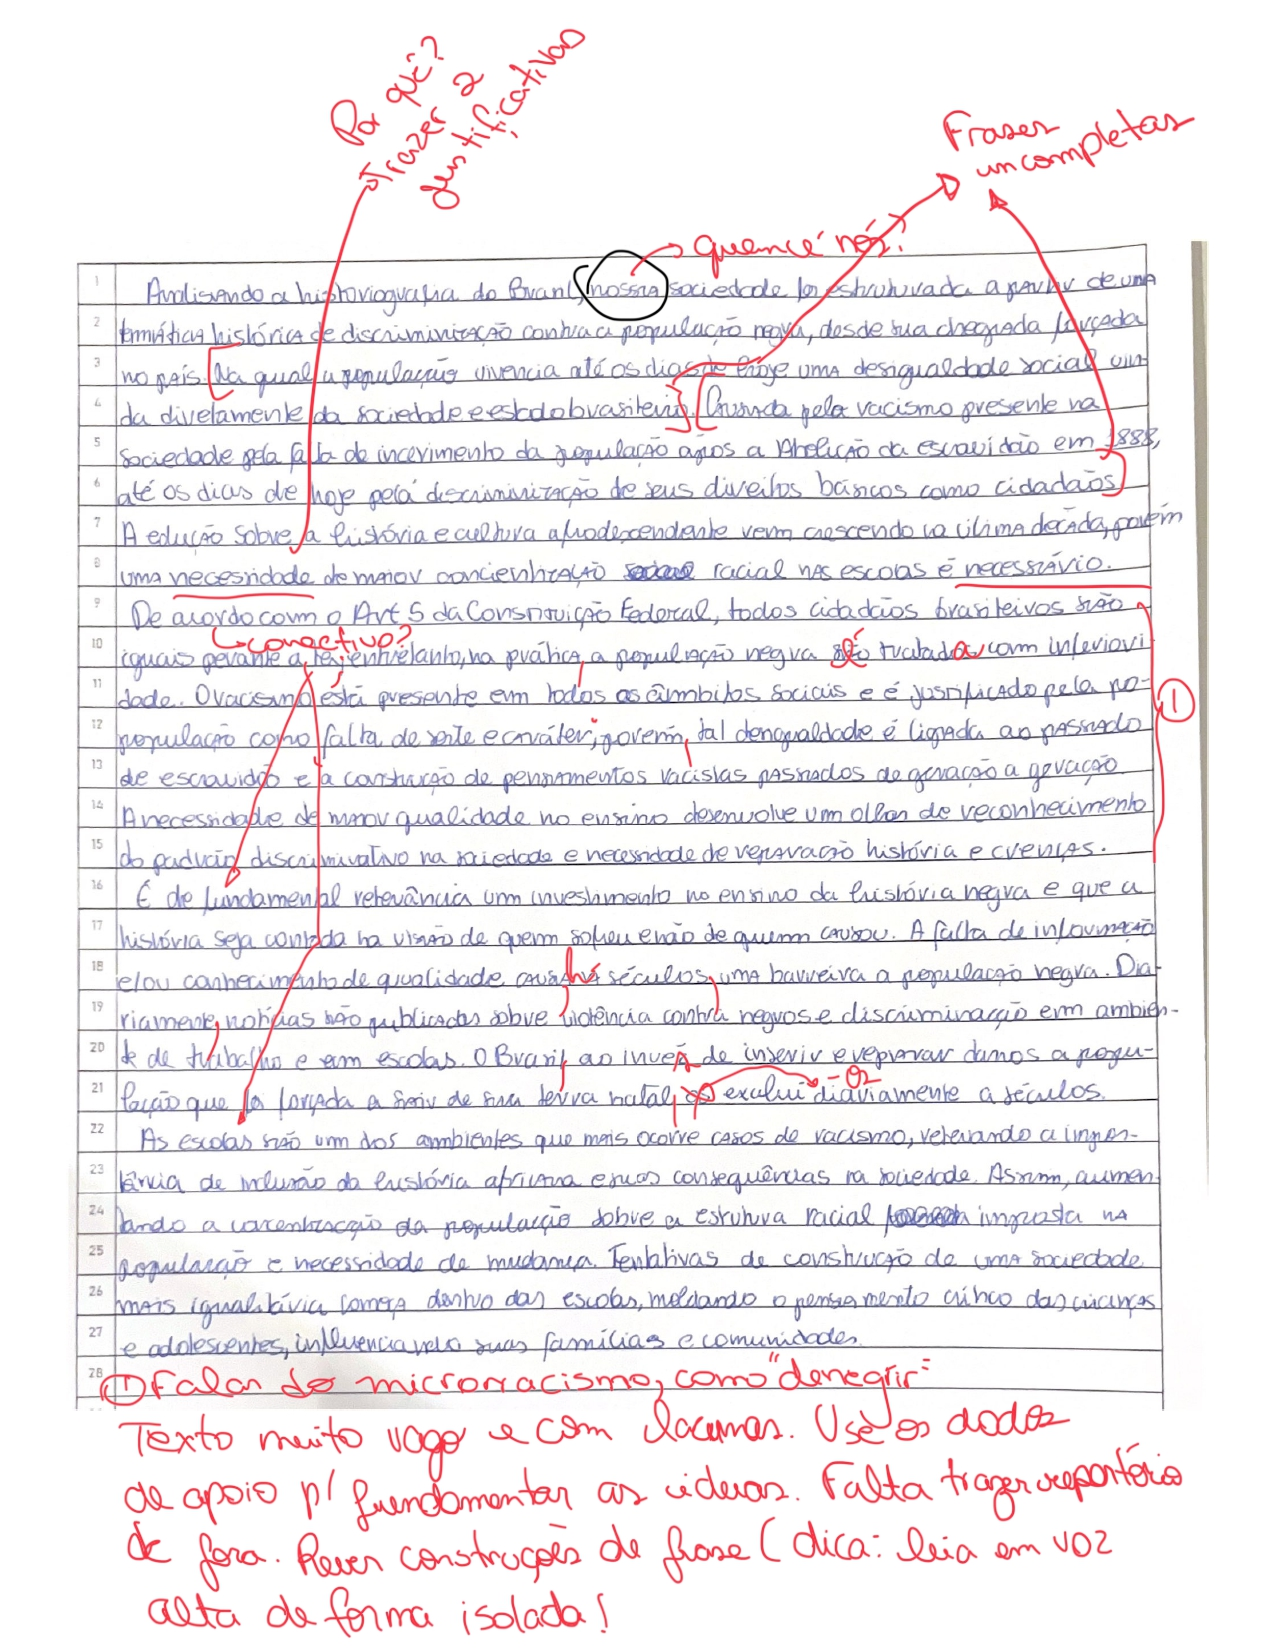 Por quê?
Trazer 2
justificativas
Frases
incompletas
quem é nós?
1 Analisando a historiografia do Brasil, nossa sociedade foi estruturada a partir de uma
2 temática histórica de discriminação contra a população negra, desde sua chegada forçada
3 no país. Na qual a população vivencia até os dias de hoje uma desigualdade social vin
4 da diretamente da sociedade e estado brasileiro. Causada pelo racismo presente na
5 sociedade pela falta de incerimento da população após a Abolição da escravidão em 1888,
6 até os dias de hoje pela descriminização de seus direitos básicos como cidadãos.
7 A edução sobre a história e cultura afrodescendente vem crescendo na última década, porém
8 uma necessidade de maior concientização racial nas escolas é necessário.
9 De acordo com o Art 5 da Constituição Federal, todos cidadãos brasileiros são
conectivo?
10 iguais perante a lei, entretanto, na prática, a população negra é tratada com inferiori
11 dade. O racismo está presente em todos os âmbitos sociais e é justificado pela po-
1
12 população como falta de sorte e caráter, porém, tal desigualdade é ligada ao passado
13 de escravidão e a construção de pensamentos racistas passados de geração a geração.
14 A necessidade de maior qualidade no ensino desenvolve um olhar de reconhecimento
15 do padrão discriminativo na sociedade e necessidade de reparação história e crenças.
16 É de fundamental relevância um investimento no ensino da história negra e que a
17 história seja contada na visão de quem sofreu e não de quem causou. A falta de informação
18 e/ou conhecimento de qualidade causa há séculos, uma barreira a população negra. Dia-
19 riamente, notícias são publicadas sobre violência contra negros e discriminação em ambien-
20 te de trabalho e em escolas. O Brasil, ao invés de inserir e reparar danos a popu-
- os
21 lação que foi forçada a sair de sua terra natal, os exclui diariamente a séculos.
22 As escolas são um dos ambientes que mais ocorre casos de racismo, relevando a impor-
23 tância de inclusão da história africana e suas consequências na sociedade. Assim, aumen
24 tando a concientização da população sobre a estrutura racial imposta na
25 população e necessidade de mudança. Tentativas de construção de uma sociedade
26 mais igualitária começa dentro das escolas, moldando o pensamento crítico das crianças
27 e adolescentes, influenciando suas famílias e comunidades.
28
1 Falar do microrracismo, como "denegrir"
Texto muito vago e com lacunas. Use os dados
de apoio p/ fundamentar as ideias. Falta trazer repertório
de fora. Rever construções de frase (dica: leia em voz
alta de forma isolada!